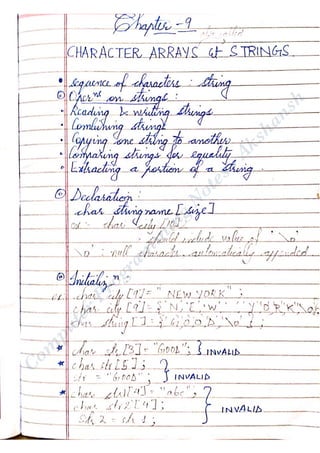 Chapter - 9
CHARACTER ARRAYS & STRINGS
• Sequence of characters : string
⊙ Oper^ns on strings :
• Reading & writing strings
• Combining strings
• Copying one string to another
• Comparing strings for equality
• Extracting a portion of a string.
⊙ Declaration :
char stringname [size]
ex :- char city [10];
should include value of '\0'
'\0' : null character, automatically appended.
⊙ Initializ^n :
ex. char city [9] = " NEW YORK" ;
char city [9] = { 'N', 'E', 'W', ' ', 'Y', 'O', 'R', 'K', '\0' };
char string [] = { 'G', 'O', 'O', 'D', '\0' } ;
* char str [3] = "GOOD"; } INVALID
* char str [5] ;
str = "GOOD" ; } INVALID
* char str1[4] = "abc" ;
char str2 [4] ;
Str 2 = str 1 ; } INVALID